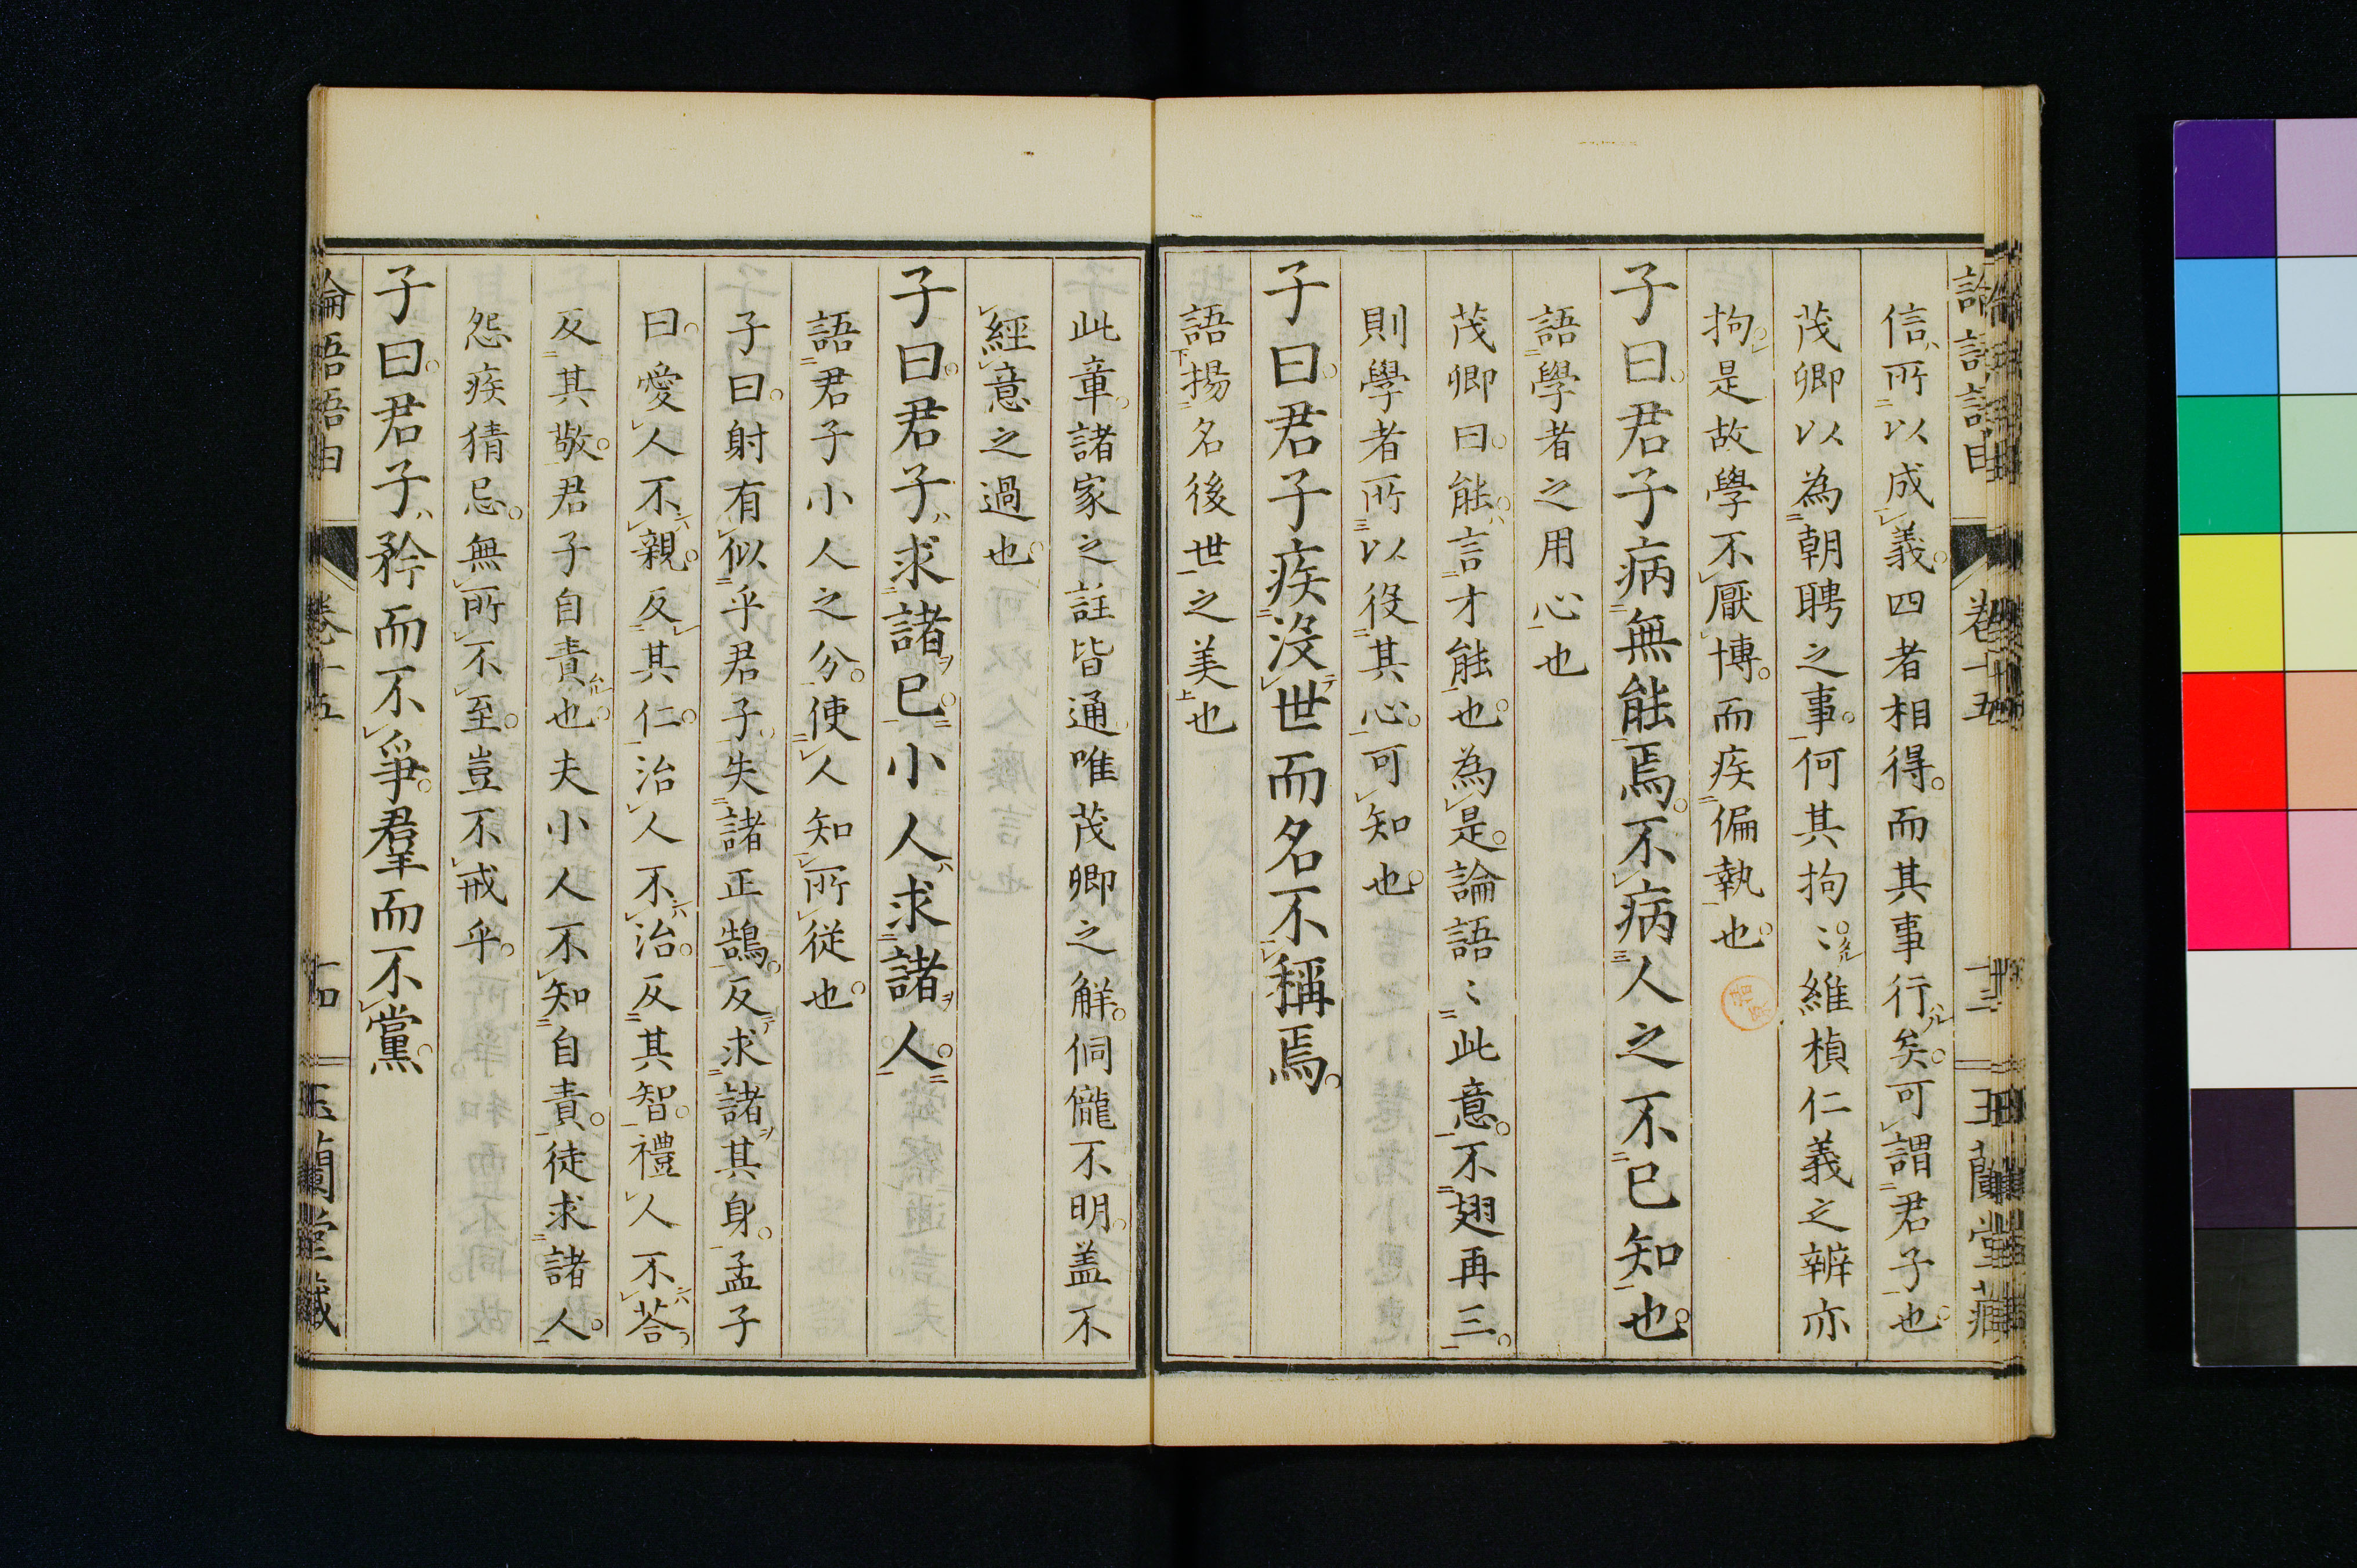 論語語由 卷十五 十三 玉蘭堂藏
信所以成義四者相得而其事行矣可謂君子也
茂卿以為朝聘之事何其拘〻維楨仁義之辨亦
拘是故學不厭博而疾偏執也
子曰君子病無能焉不病人之不已知也
語學者之用心也
茂卿曰能言才能也為是論語〻此意不翅再三
則學者所以役其心可知也
子曰君子疾沒世而名不稱焉
語揚名後世之美也
此章諸家之註皆通唯茂卿之解侗儱不明盖不
經意之過也
子曰君子求諸已小人求諸人
語君子小人之分使人知所從也
子曰射有似乎君子失諸正鵠反求諸其身孟子
曰愛人不親反其仁治人不治反其智禮人不荅
反其敬君子自責也夫小人不知自責徒求諸人
怨疾猜忌無所不至豈不戒乎
子曰君子矜而不爭羣而不黨
論語語由 卷十五 十四 玉蘭堂藏